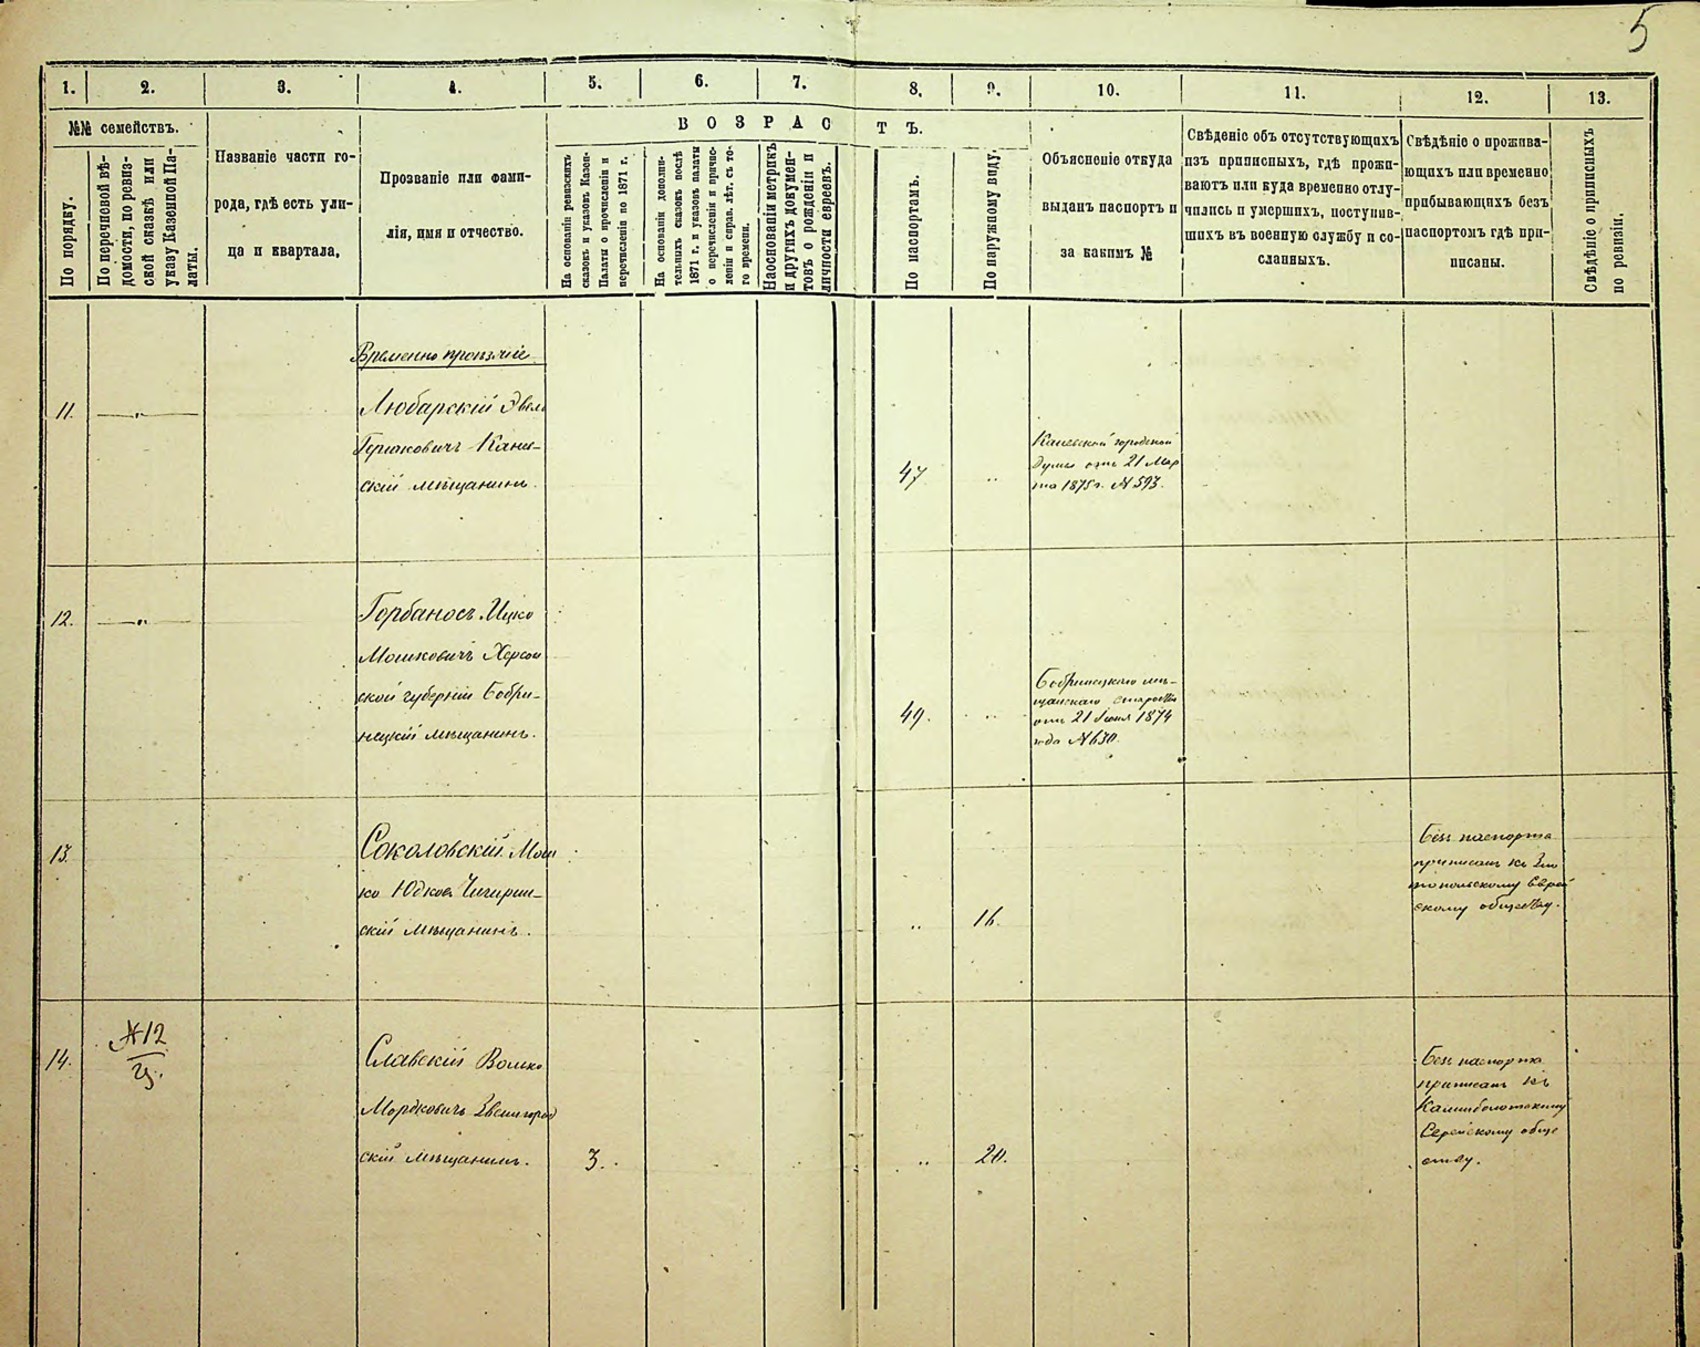 5
1. 2. 3. 4. 5. 6. 7. 8. 9. 10. 11. 12. 13.
№№ семействъ.
По порядку.
По перечневой вѣ-
домости, по ревиз-
ской сказкѣ или
указу Казенной Па-
латы.
Названіе части го-
рода, гдѣ есть ули-
ца и квартала,
Прозваніе или фами-
лія, имя и отчество.
ВОЗРАСТЪ.
На основаніи ревизскихъ
сказокъ и указовъ Казен.
Палаты о прочисленіи и
перечисленіи по 1871 г.
На основаніи дополни-
тельныхъ сказокъ послѣ
1871 г. и указовъ палаты
о перечисленіи и причис-
леніи и справ. лѣт. съ то-
го времени.
На основаніи метрикъ
и другихъ докумен-
товъ о рожденіи и
личности евреевъ.
По паспортамъ.
По наружному виду.
Объясненіе откуда
выданъ паспортъ и
за какимъ №
Свѣденіе объ отсутствующихъ
изъ приписныхъ, гдѣ прожи-
ваютъ или куда временно отлу-
чились и умершихъ, поступив-
шихъ въ военную службу и со-
сланныхъ.
Свѣдѣніе о прожива-
ющихъ или временно
прибывающихъ безъ
паспортомъ гдѣ при-
писаны.
Свѣдѣніе о приписныхъ
по ревизіи.
Временно
11. —„—
Любарскій
Гершковичъ Канев-
скій мѣщанинъ.
47 „
Каневской городской
Думы отъ 21 Мар
та 1875 г. № 593.
12. —„—
Горбаносъ Ицко
Мошковичъ Херсон
ской губерніи Бобри-
нецкій мѣщанинъ.
49. „
Бобринецкаго мѣ-
щанскаго
отъ 21 Іюня 1874
года № 630.
13.
Соколовскій Мош
ко Юдков. Чигирин-
скій мѣщанинъ.
„ 16.
Безъ паспорта
приписанъ къ Зла
топольскому Еврей
скому обществу.
14. № 12
Славскій Волько
Мордковичъ Звенигород
скій мѣщанинъ.
3. „ 20.
Безъ паспорта
приписанъ къ
Калниболотскому
Еврейскому обще
ству.